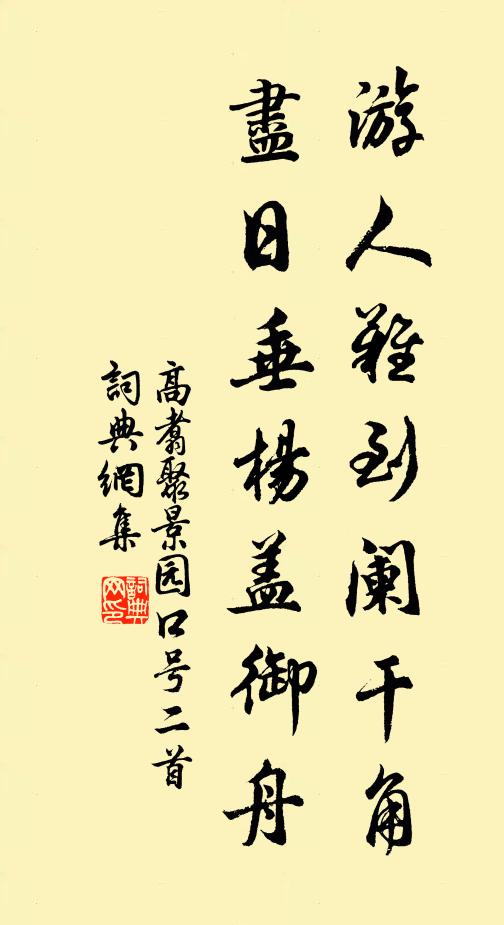 游人难到阑干角
盡日垂楊盖御舟
高翥聚景园口号二首
詞典網集
詞典
网印